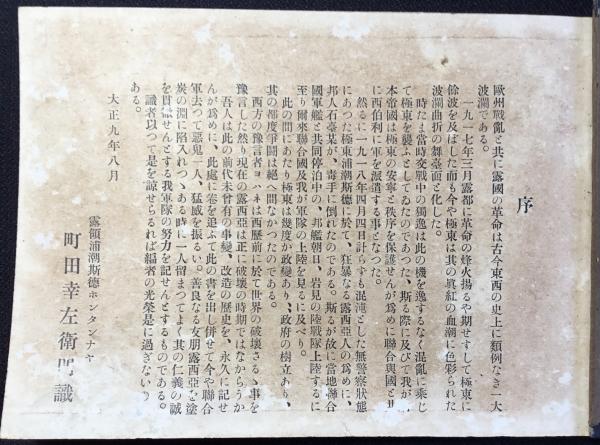 序
歐州戰亂と共に露國の革命は古今東西の史上に類例なき一大
波瀾である。
一九一七年三月露都に革命の烽火揚るや期せずして極東に
餘波を及ぼした而も今や極東は其の眞紅の血潮に色彩られた
波瀾曲折の舞臺面と化した。
時たま當時交戰中の獨逸は此の機を逸するなく混亂に乘じ
て極東を襲ふとしてゐたのであつた、斯る際に及びて我が
本帝國は極東の安寧と秩序を保護せんが爲めに聯合與國と共
に西伯利に軍を派遣する事となつた。
然るに一九一八年四月四日計らずも混沌とした無警察狀態
にあつた極東浦潮斯德に於て、狂暴なる露西亞人の爲めに、
邦人石臺某が、毒手に倒れたのである。斯るが故に當地聯合
國軍艦と共同停泊中の、邦艦朝日、岩見の陸戰隊上陸するに
至り爾來聯合國及我が軍隊の上陸を見るに及べり。
此の間にあたり極東は幾度か政變あり、政府の樹立あり、
其の都度爭鬪は絕へ間なかつたのである。
西方の豫言者ヨハネは西歷前に於て世界の破壞さるゝ事を
豫言した然り現在の露西亞は正に破壞の時期ではなからうか
吾人は此の前代未曾有の事變、改造の歷史を、永久に記せ
んが爲めに、此處に卷を追ふて此の書を出し併せて今や聯合
軍去つて惡鬼一人、猛威を振るい。善良なる友朋露西亞を塗
炭の淵に陷入れつゝある時に一人留まつてよく其の仁義の誠
を貫徹せんとする我軍隊の努力を記せんとするものである。
識者以つて是を諒せらるれば編者の光榮是に過ぎない。
ある。
大正九年八月
露領浦潮斯德ホンタンナヤ
町田幸左衛門識